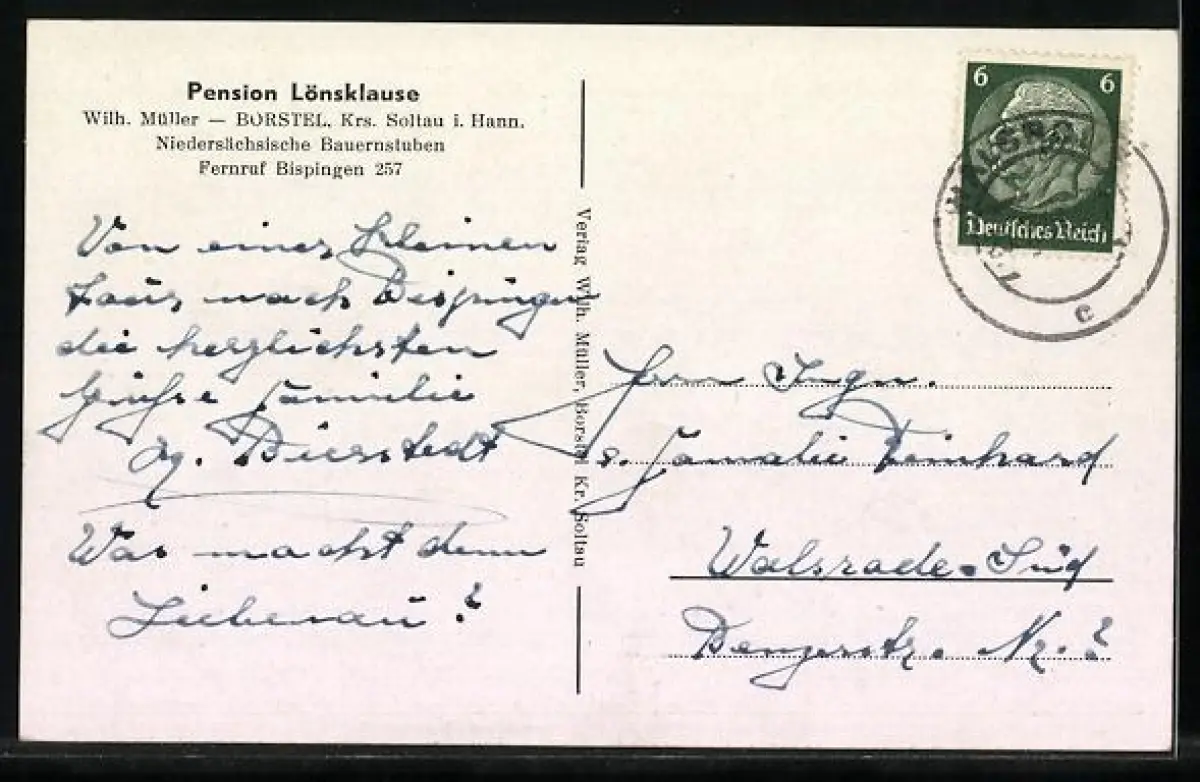 Pension Lönsklause
Wilh. Müller — BORSTEL, Krs. Soltau i. Hann.
Niedersächsische Bauernstuben
Fernruf Bispingen 257
Von einer kleinen
nach Bispingen
die herzlichsten
Grüsse Familie
Bierstedt
Was macht denn
Liebenau?
Verlag Wilh. Müller, Borstel Kr. Soltau
6 6
Deutsches Reich
c
Herrn Ingn.
Familie Deinhard
Walsrode-Süd
Nr. ?